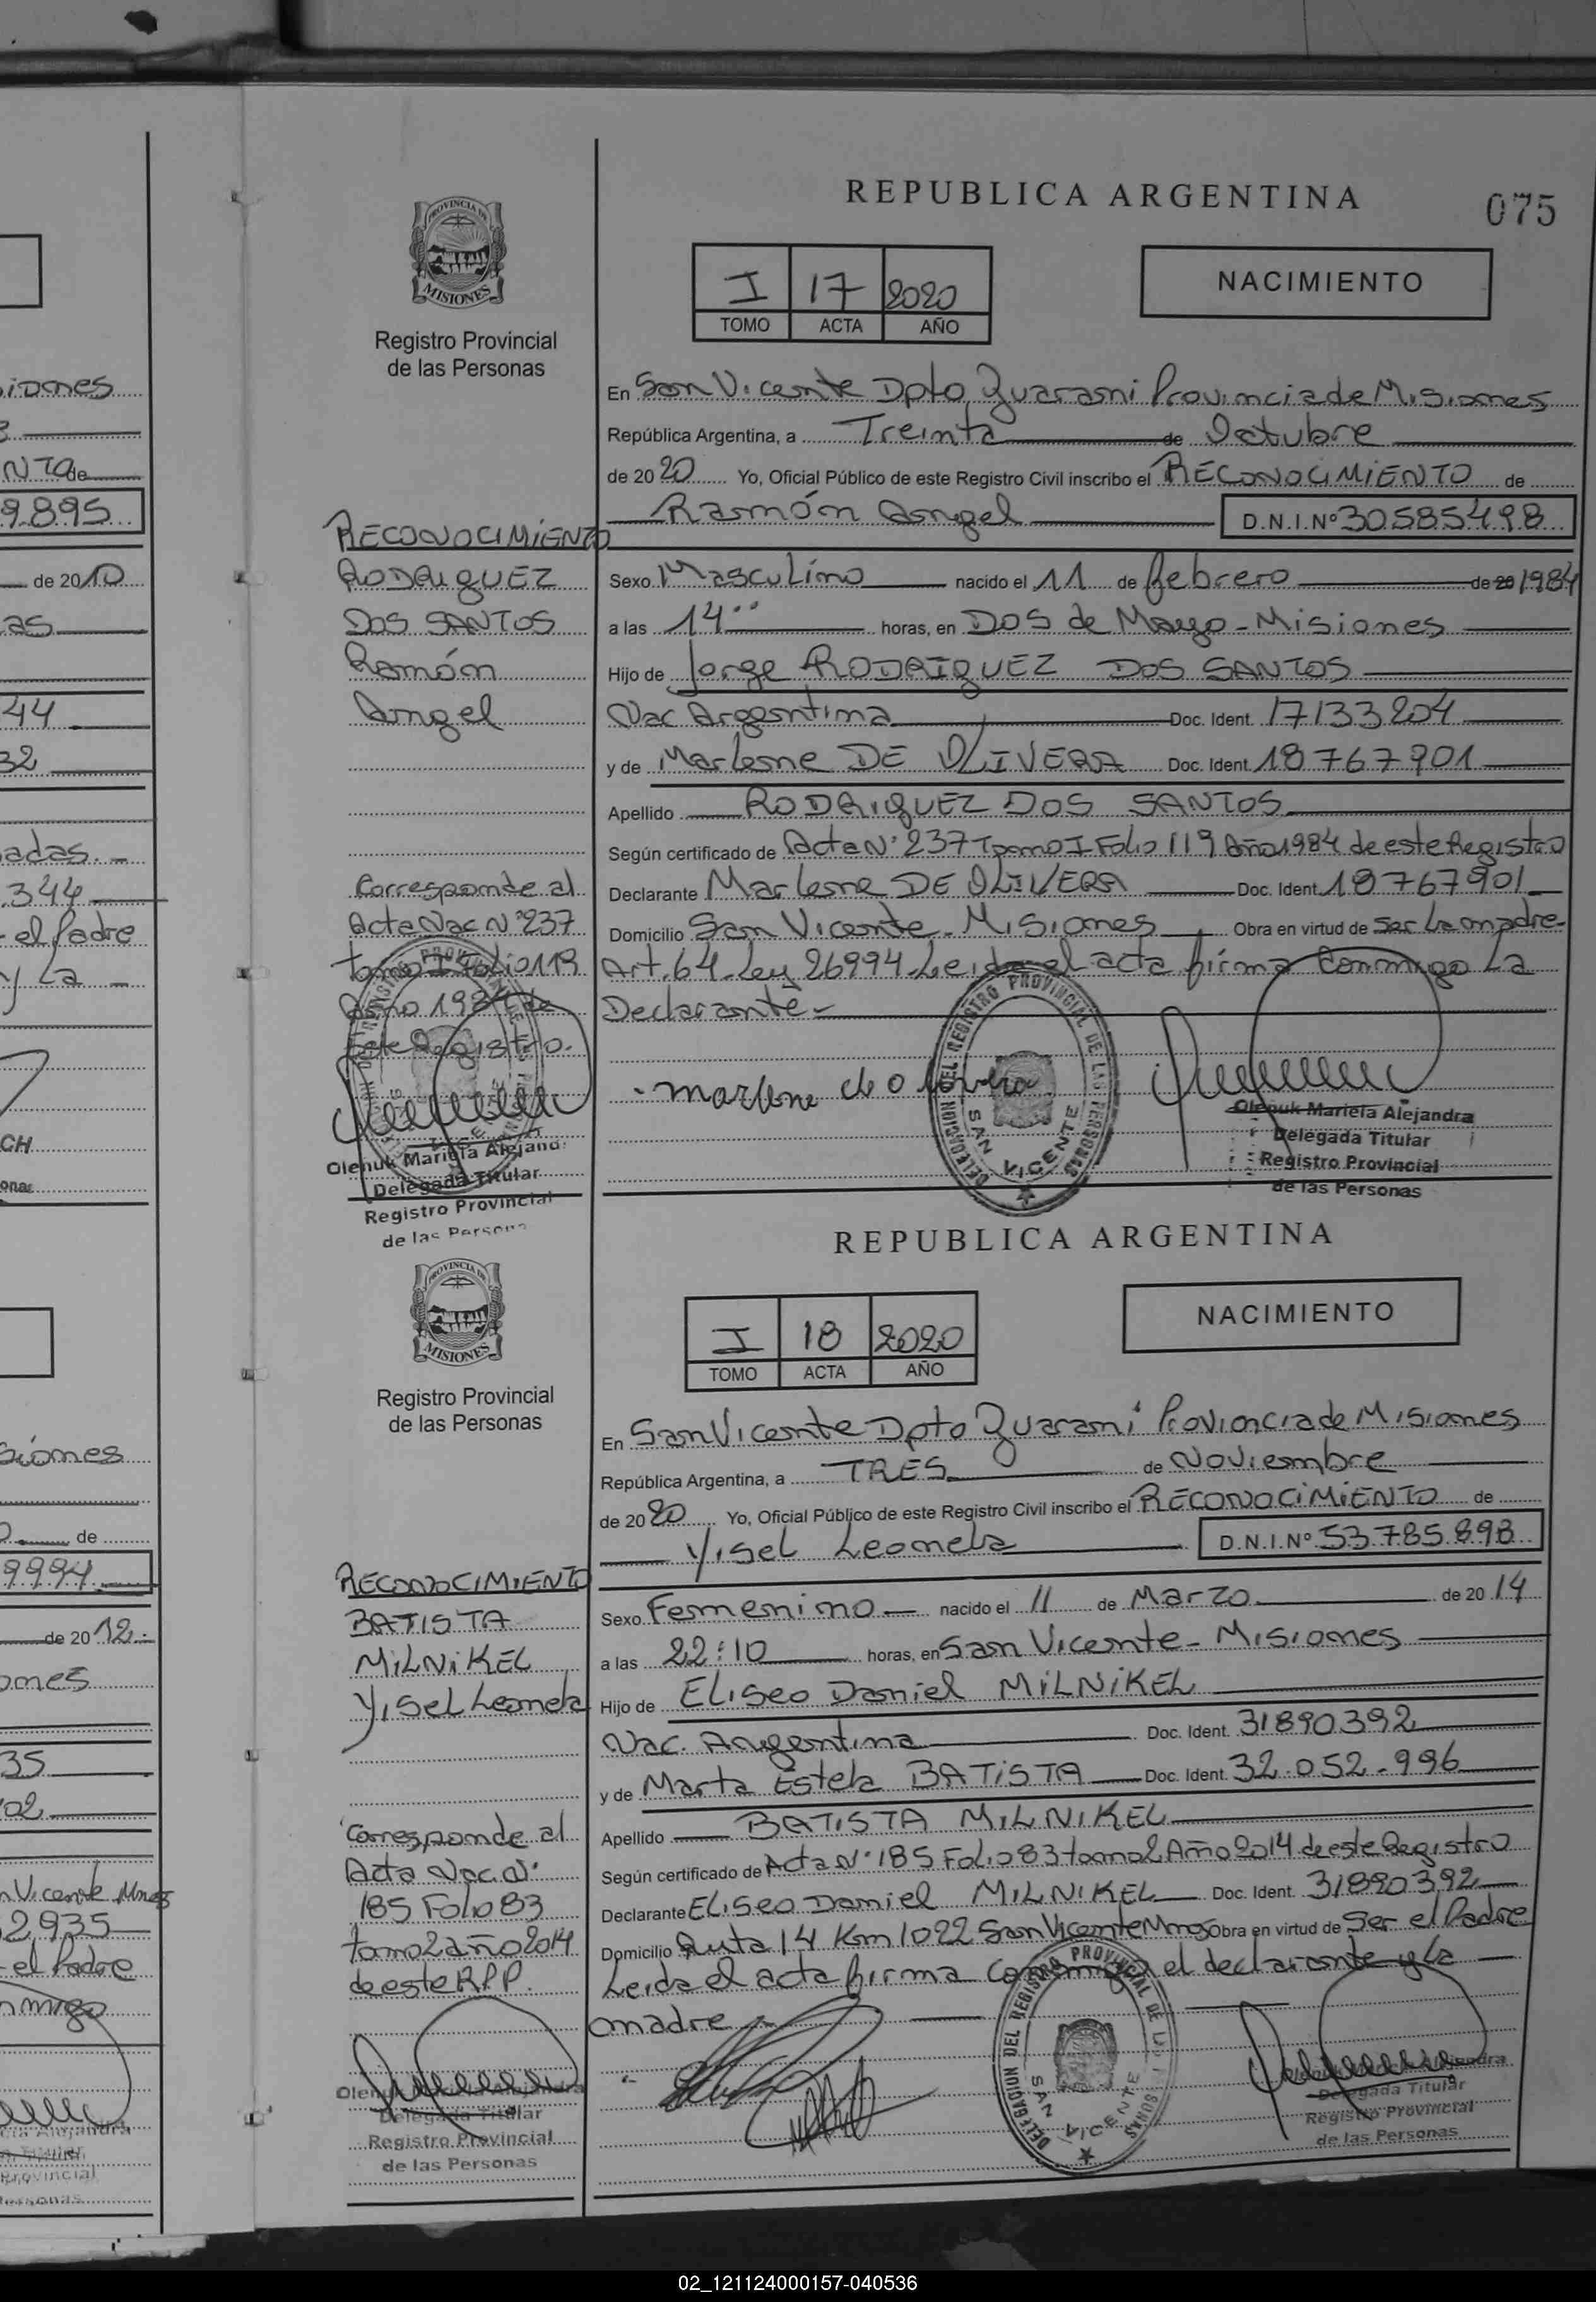 REPUBLICA ARGENTINA
075
PROVINCIA DE
MISIONES
Registro Provincial
de las Personas
I 17 2020
TOMO ACTA AÑO
NACIMIENTO
En San Vicente Dpto Guarani Provincia de Misiones
República Argentina, a Treinta de Octubre
de 2020 Yo, Oficial Público de este Registro Civil inscribo el RECONOCIMIENTO de
Ramón Angel D.N.I.Nº 30585498
Sexo Masculino nacido el 11 de febrero de 20 1984
a las 14 horas, en DOS de Mayo - Misiones
Hijo de Jorge RODRIGUEZ DOS SANTOS
Nac. Argentina Doc. Ident. 17133204
y de Marlene DE OLIVERA Doc. Ident. 18767901
Apellido RODRIGUEZ DOS SANTOS
Según certificado de Acta Nº 237 Tomo I Folio 119 Año 1984 de este Registro
Declarante Marlene DE OLIVERA Doc. Ident. 18767901
Domicilio San Vicente - Misiones Obra en virtud de Ser La madre-
Art. 64 Ley 26994 Leida el acta firma Conmigo La
Declarante-
RECONOCIMIENTO
RODRIGUEZ
DOS SANTOS
Ramón
Angel
Corresponde al
Acta Nac Nº 237
tomo I Folio 119
Año 1984 de
este Registro.
Olenuk Mariela Alejand
Delegada Titular
Registro Provincial
de las Persona
DELEGACION DEL REGISTRO PROVINCIAL DE LAS PERSONAS
SAN VICENTE
Olenuk Mariela Alejandra
Delegada Titular
Registro Provincial
de las Personas
REPUBLICA ARGENTINA
PROVINCIA DE
MISIONES
Registro Provincial
de las Personas
I 18 2020
TOMO ACTA AÑO
NACIMIENTO
En San Vicente Dpto Guarani Provincia de Misiones
República Argentina, a TRES de Noviembre
de 2020 Yo, Oficial Público de este Registro Civil inscribo el RECONOCIMIENTO de
Yisel Leonela D.N.I.Nº 53.785.898
Sexo Femenino nacido el 11 de Marzo de 2014
a las 22:10 horas, en San Vicente - Misiones
Hijo de Eliseo Daniel MILNIKEL
Nac. Argentina Doc. Ident. 31890392
y de Marta Estela BATISTA Doc. Ident. 32.052.996
Apellido BATISTA MILNIKEL
Según certificado de Acta Nº 185 Folio 83 tomo 2 Año 2014 de este Registro
Declarante Eliseo Daniel MILNIKEL Doc. Ident. 31890392
Domicilio Ruta 14 Km 1022 San Vicente Mnes Obra en virtud de Ser el Padre
Leida el acta firma Conmigo el declarante y la
madre.-
RECONOCIMIENTO
BATISTA
MILNIKEL
Yisel Leonela
Corresponde al
Acta Nac. Nº
185 Folio 83
tomo 2 año 2014
de este RPP.
Delegada Titular
Registro Provincial
de las Personas
DELEGACION DEL REGISTRO PROVINCIAL DE LAS PERSONAS
SAN VICENTE
Delegada Titular
Registro Provincial
de las Personas
02_121124000157-040536